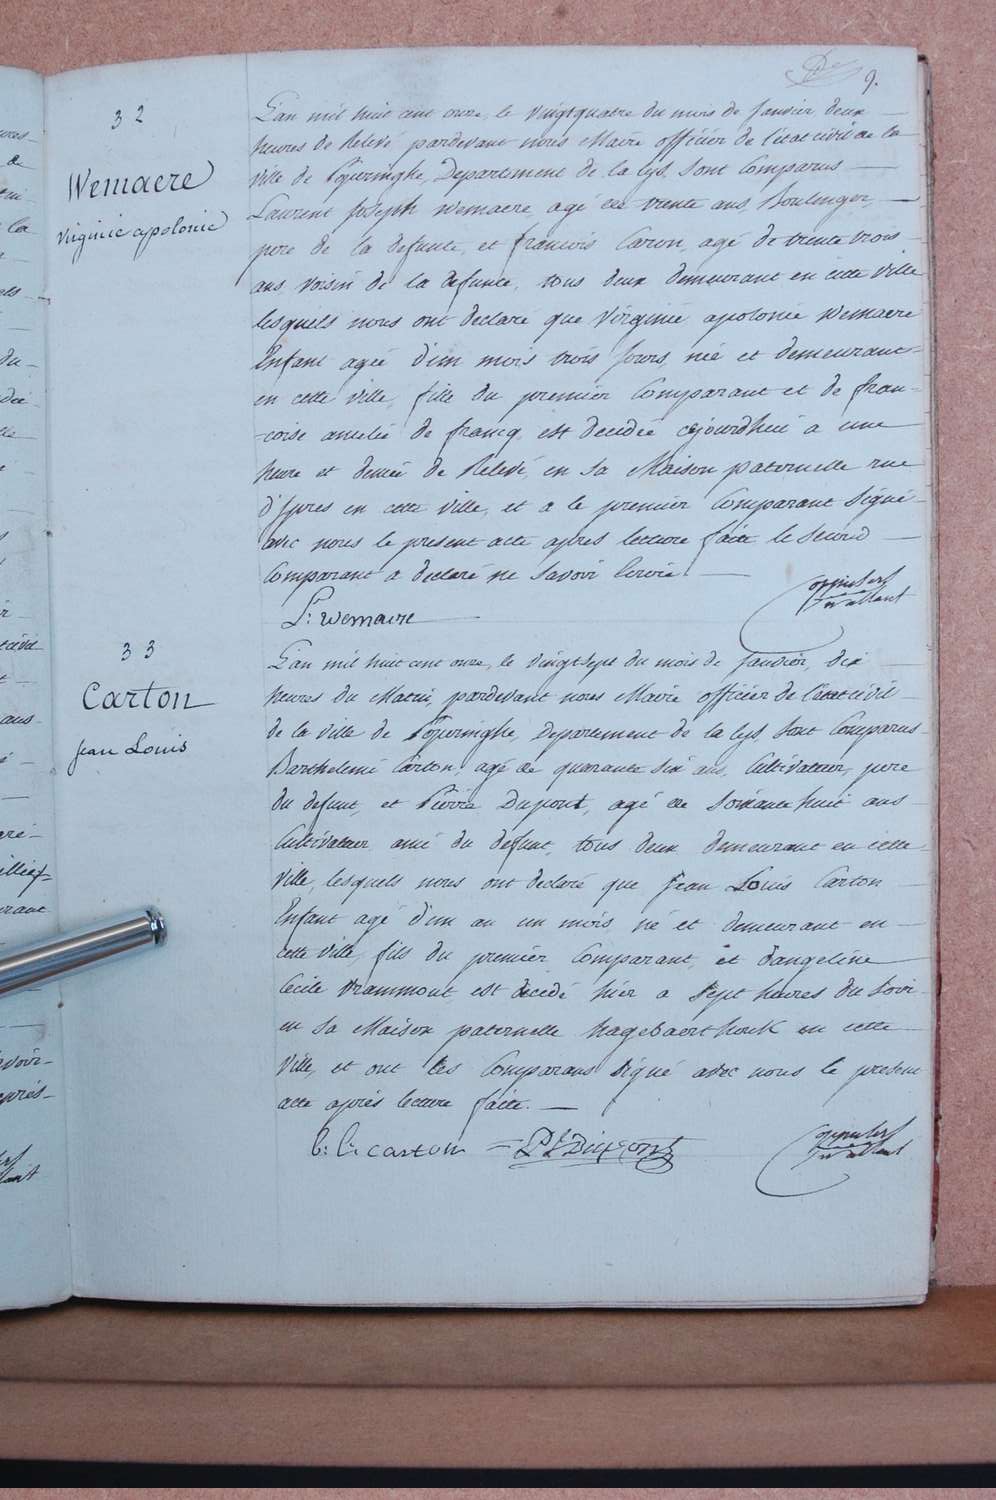 9.
32
Wemaere
Virginie apolonie
L'an mil huit cent onze, le vingtquatre du mois de Janvier deux
heures de Relevé pardevant nous Maire officier de l'état civil de la
ville de Poperinghe, Departement de la Lys, sont Comparus
Laurent Joseph Wemaere, agé de trente ans, Boulenger,
pere de la defunte, et francois Caron, agé de trente trois
ans voisin de la defunte, tous deux demeurant en cette ville
lesquels nous ont declaré que Virginie apolonie Wemaere
Enfant agée d'un mois trois Jours, née et demeurant
en cette ville, fille du premier Comparant et de fran-
-coise amelie de francq, est decedée cejourdhui a une
heure et demie de Relevé, en sa Maison paternelle rue
d'Ypres en cette ville, et a le premier Comparant Signé
avec nous le present acte apres lecture faite le second
Comparant a declaré ne savoir Ecrire
L: Wemaere
33
Carton
Jean Louis
L'an mil huit cent onze, le vingtsept du mois de Janvier, dix
heures du Matin, pardevant nous Maire officier de l'état civil
de la ville de Poperinghe, Departement de la Lys, sont Comparus
Barthelemi Carton, agé de quarante six ans, Cultivateur, pere
du defunt, et Pierre Dupont, agé de soixante huit ans
Cultivateur ami du defunt, tous deux demeurant en cette
ville, lesquels nous ont declaré que Jean Louis Carton
Enfant agé d'un an un mois, né et demeurant en
cette ville, fils du premier Comparant, et d'angeline
Cecile Vrammout, est decedé hier a Sept heures du Soir
en sa Maison paternelle hagebaert houk en cette
ville, et ont les Comparans signé avec nous le present
acte aprés lecture faite.
b: l: carton = P J Dupont